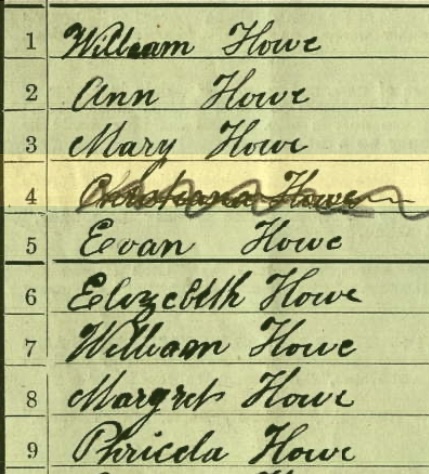 1 William Howe
2 Ann Howe
3 Mary Howe
4 Christeana Howe
5 Eevan Howe
6 Elizebtth Howe
7 William Howe
8 Margret Howe
9 Phricela Howe